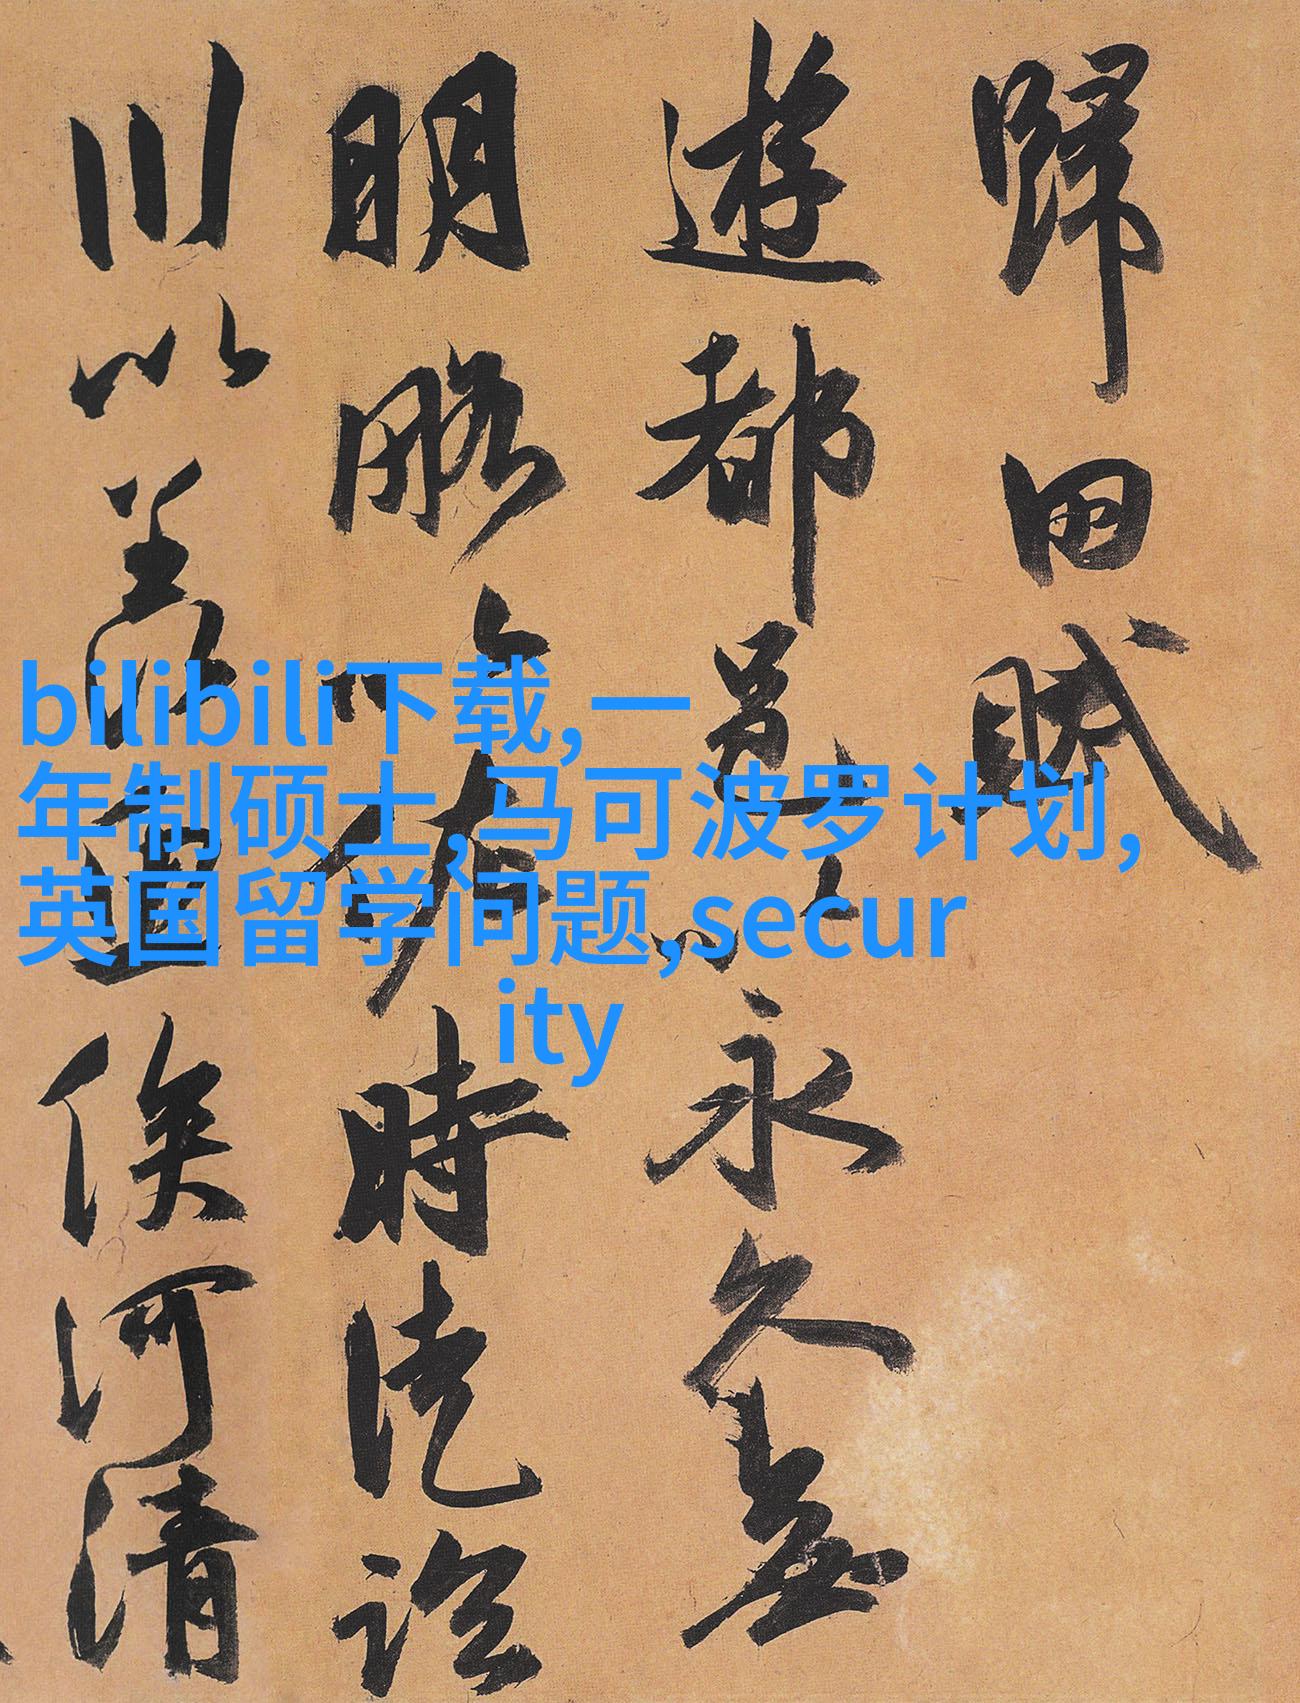 歸田賦
遊都邑以永久無
明略以佐時徒臨
川以羡魚俟河清
bilibili下载,一
年制硕士,马可波罗计划,
英国留学问题,secur
ity